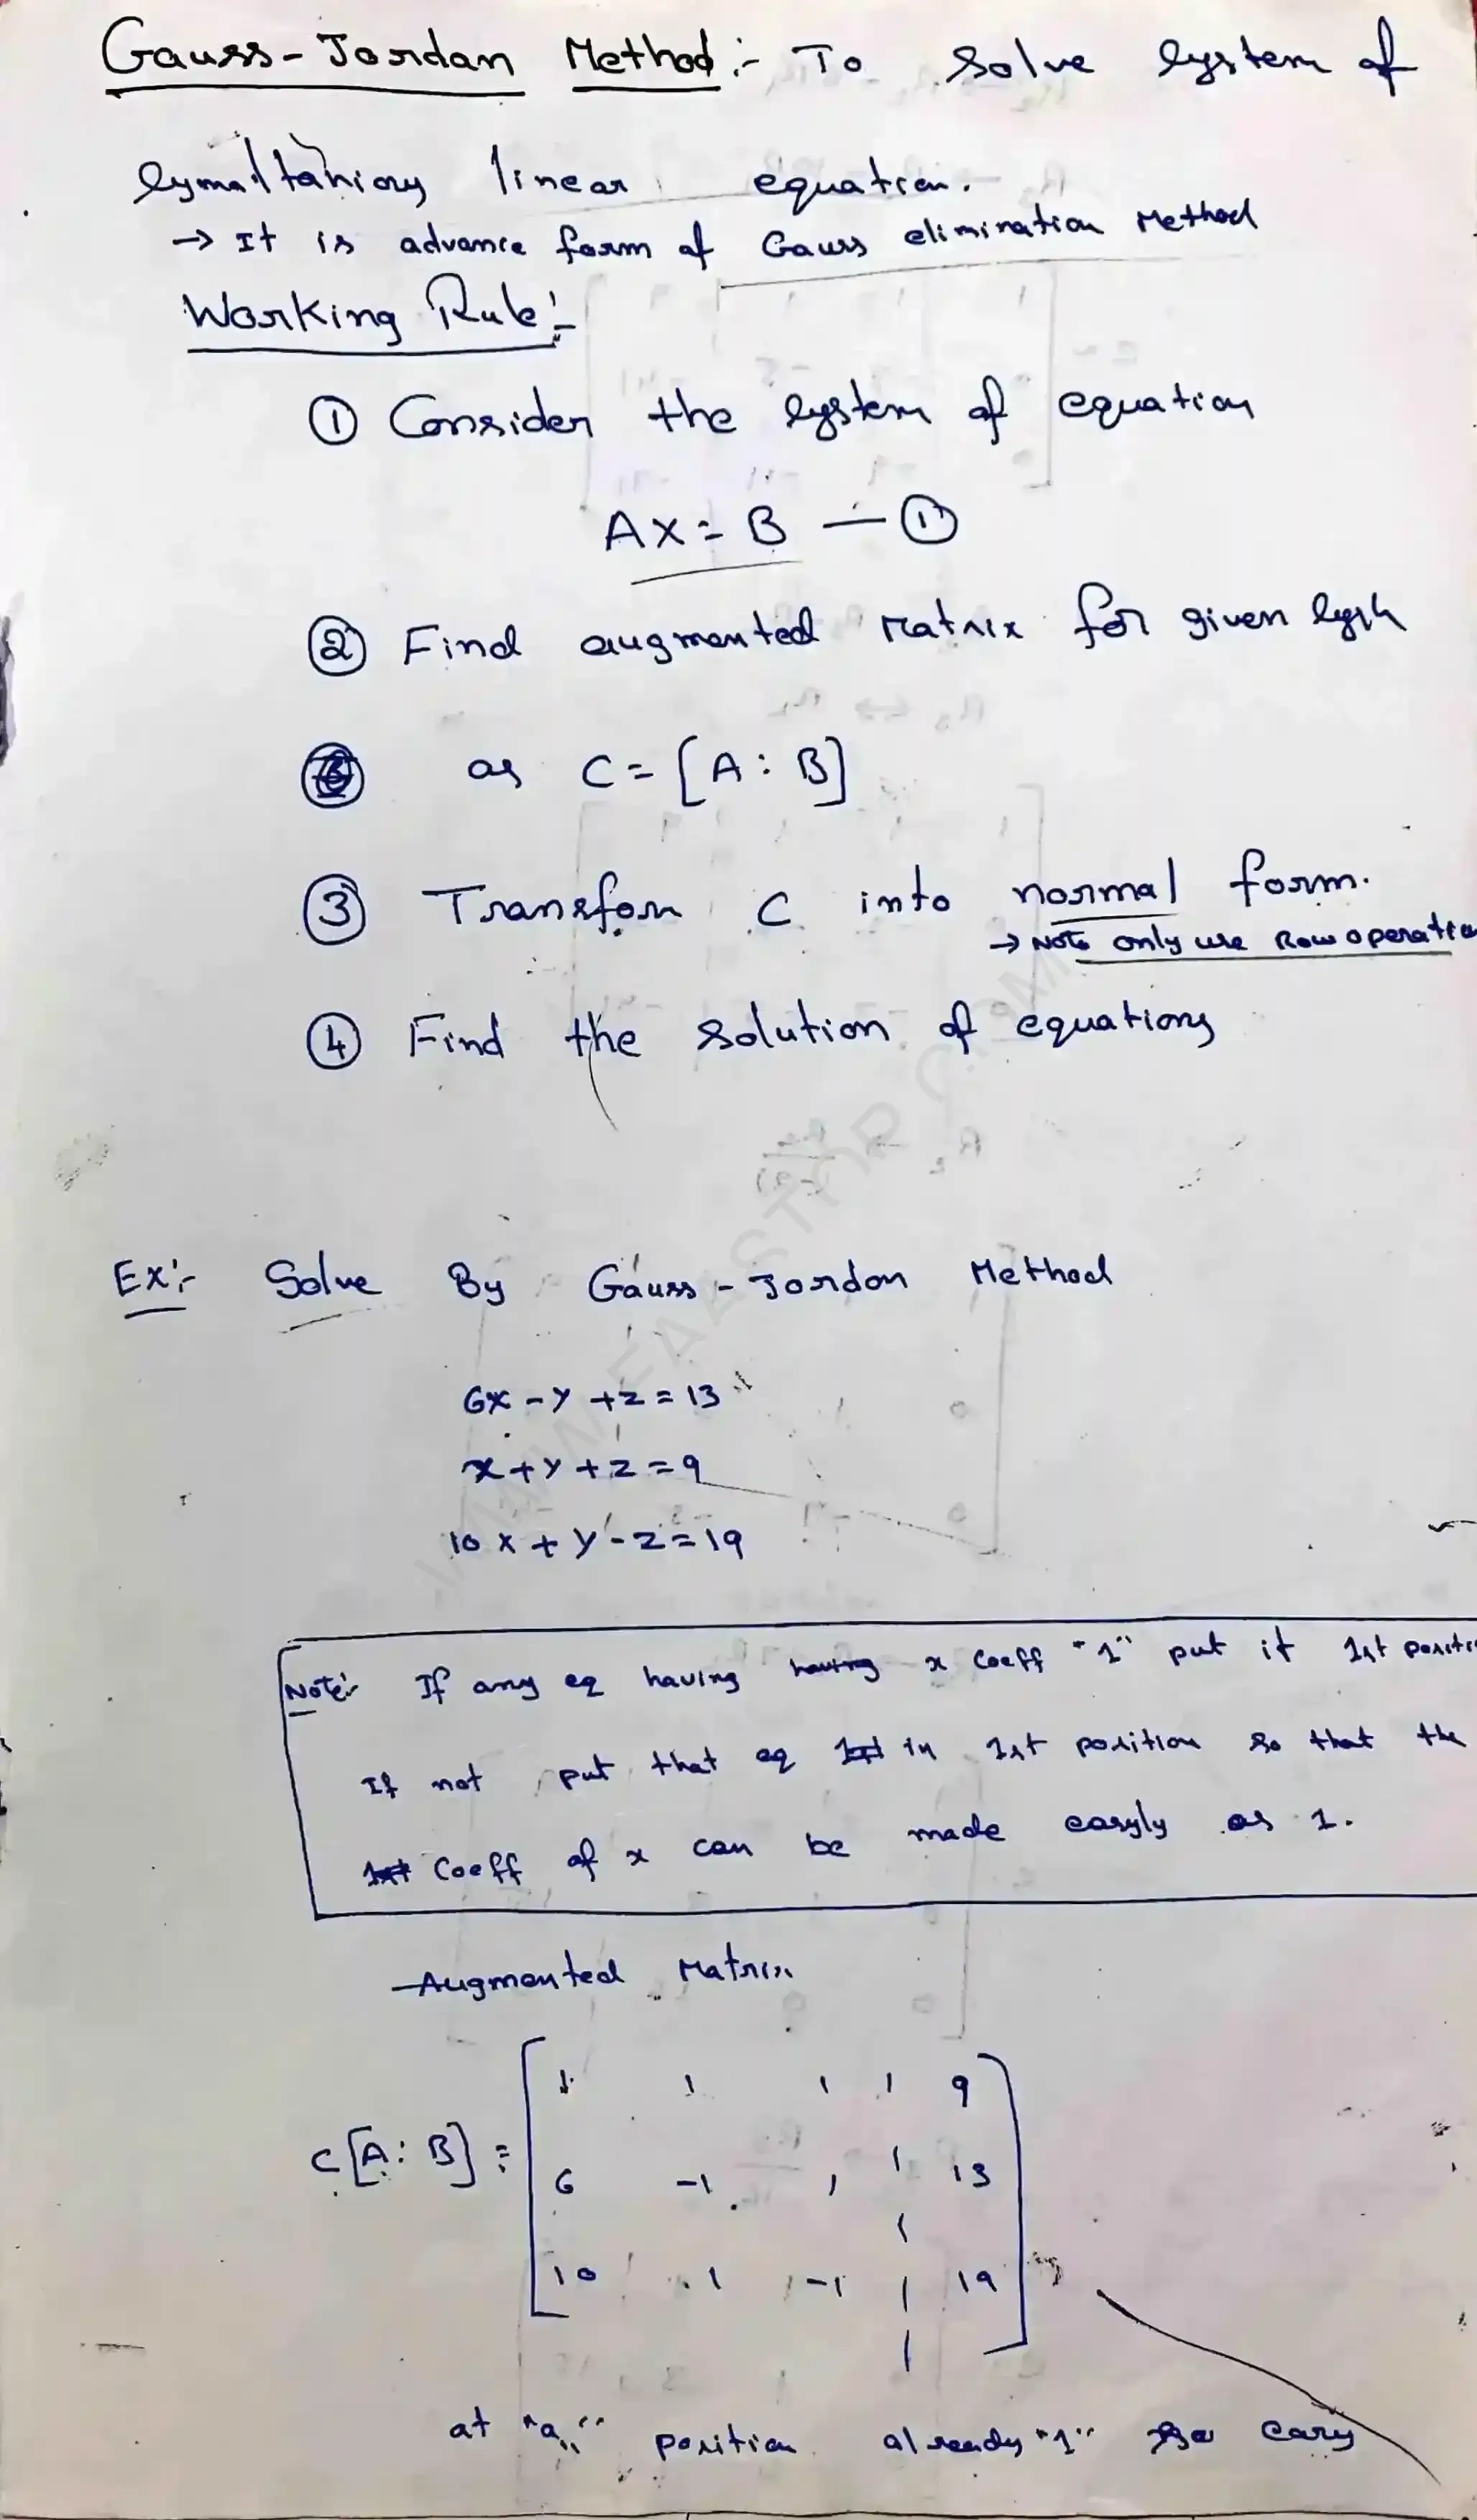 Gauss-Jordan Method:- To solve system of
symaltaniory linear equation.
→ It is advance form of Gauss elimination Method
Working Rule:-
① Consider the system of equation
AX = B — ①
② Find augmented Matrix for given
as C = [A : B]
③ Transfom C into normal form.
→ Note only use Row operatio
④ Find the solution of equations
Ex:- Solve By Gauss-Jordon Method
6x - y + z = 13
x + y + z = 9
10x + y - z = 19
Note:- If any eq having having x coeff "1" put it 1st positi
If not put that eq 1st in 1st position so that the
1st coeff of x can be made easyly as 1.
Augmented Matrix
C[A : B] = [ 1 1 1 | 9
6 -1 1 | 13
10 1 -1 | 19 ]
at "a₁₁" position already "1" so easy
WWW.FAASTOP.COM